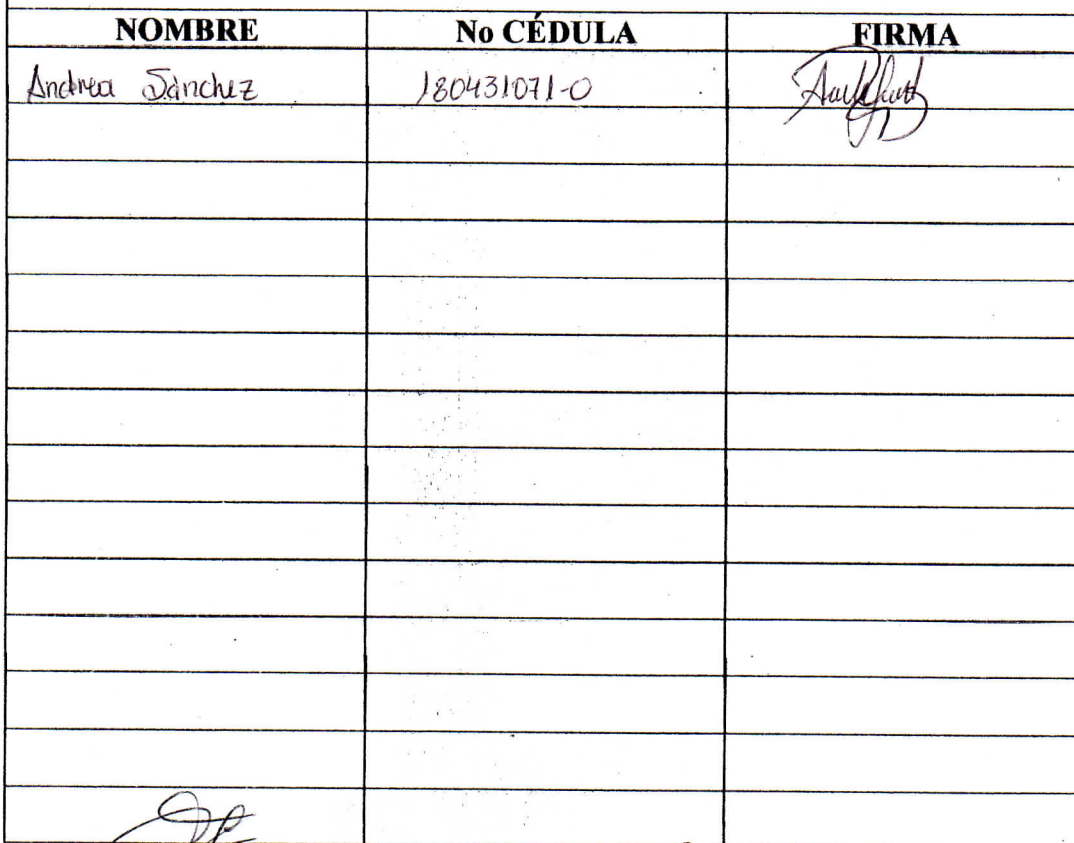 NOMBRE No CÉDULA FIRMA
Andrea Sánchez 180431071-0